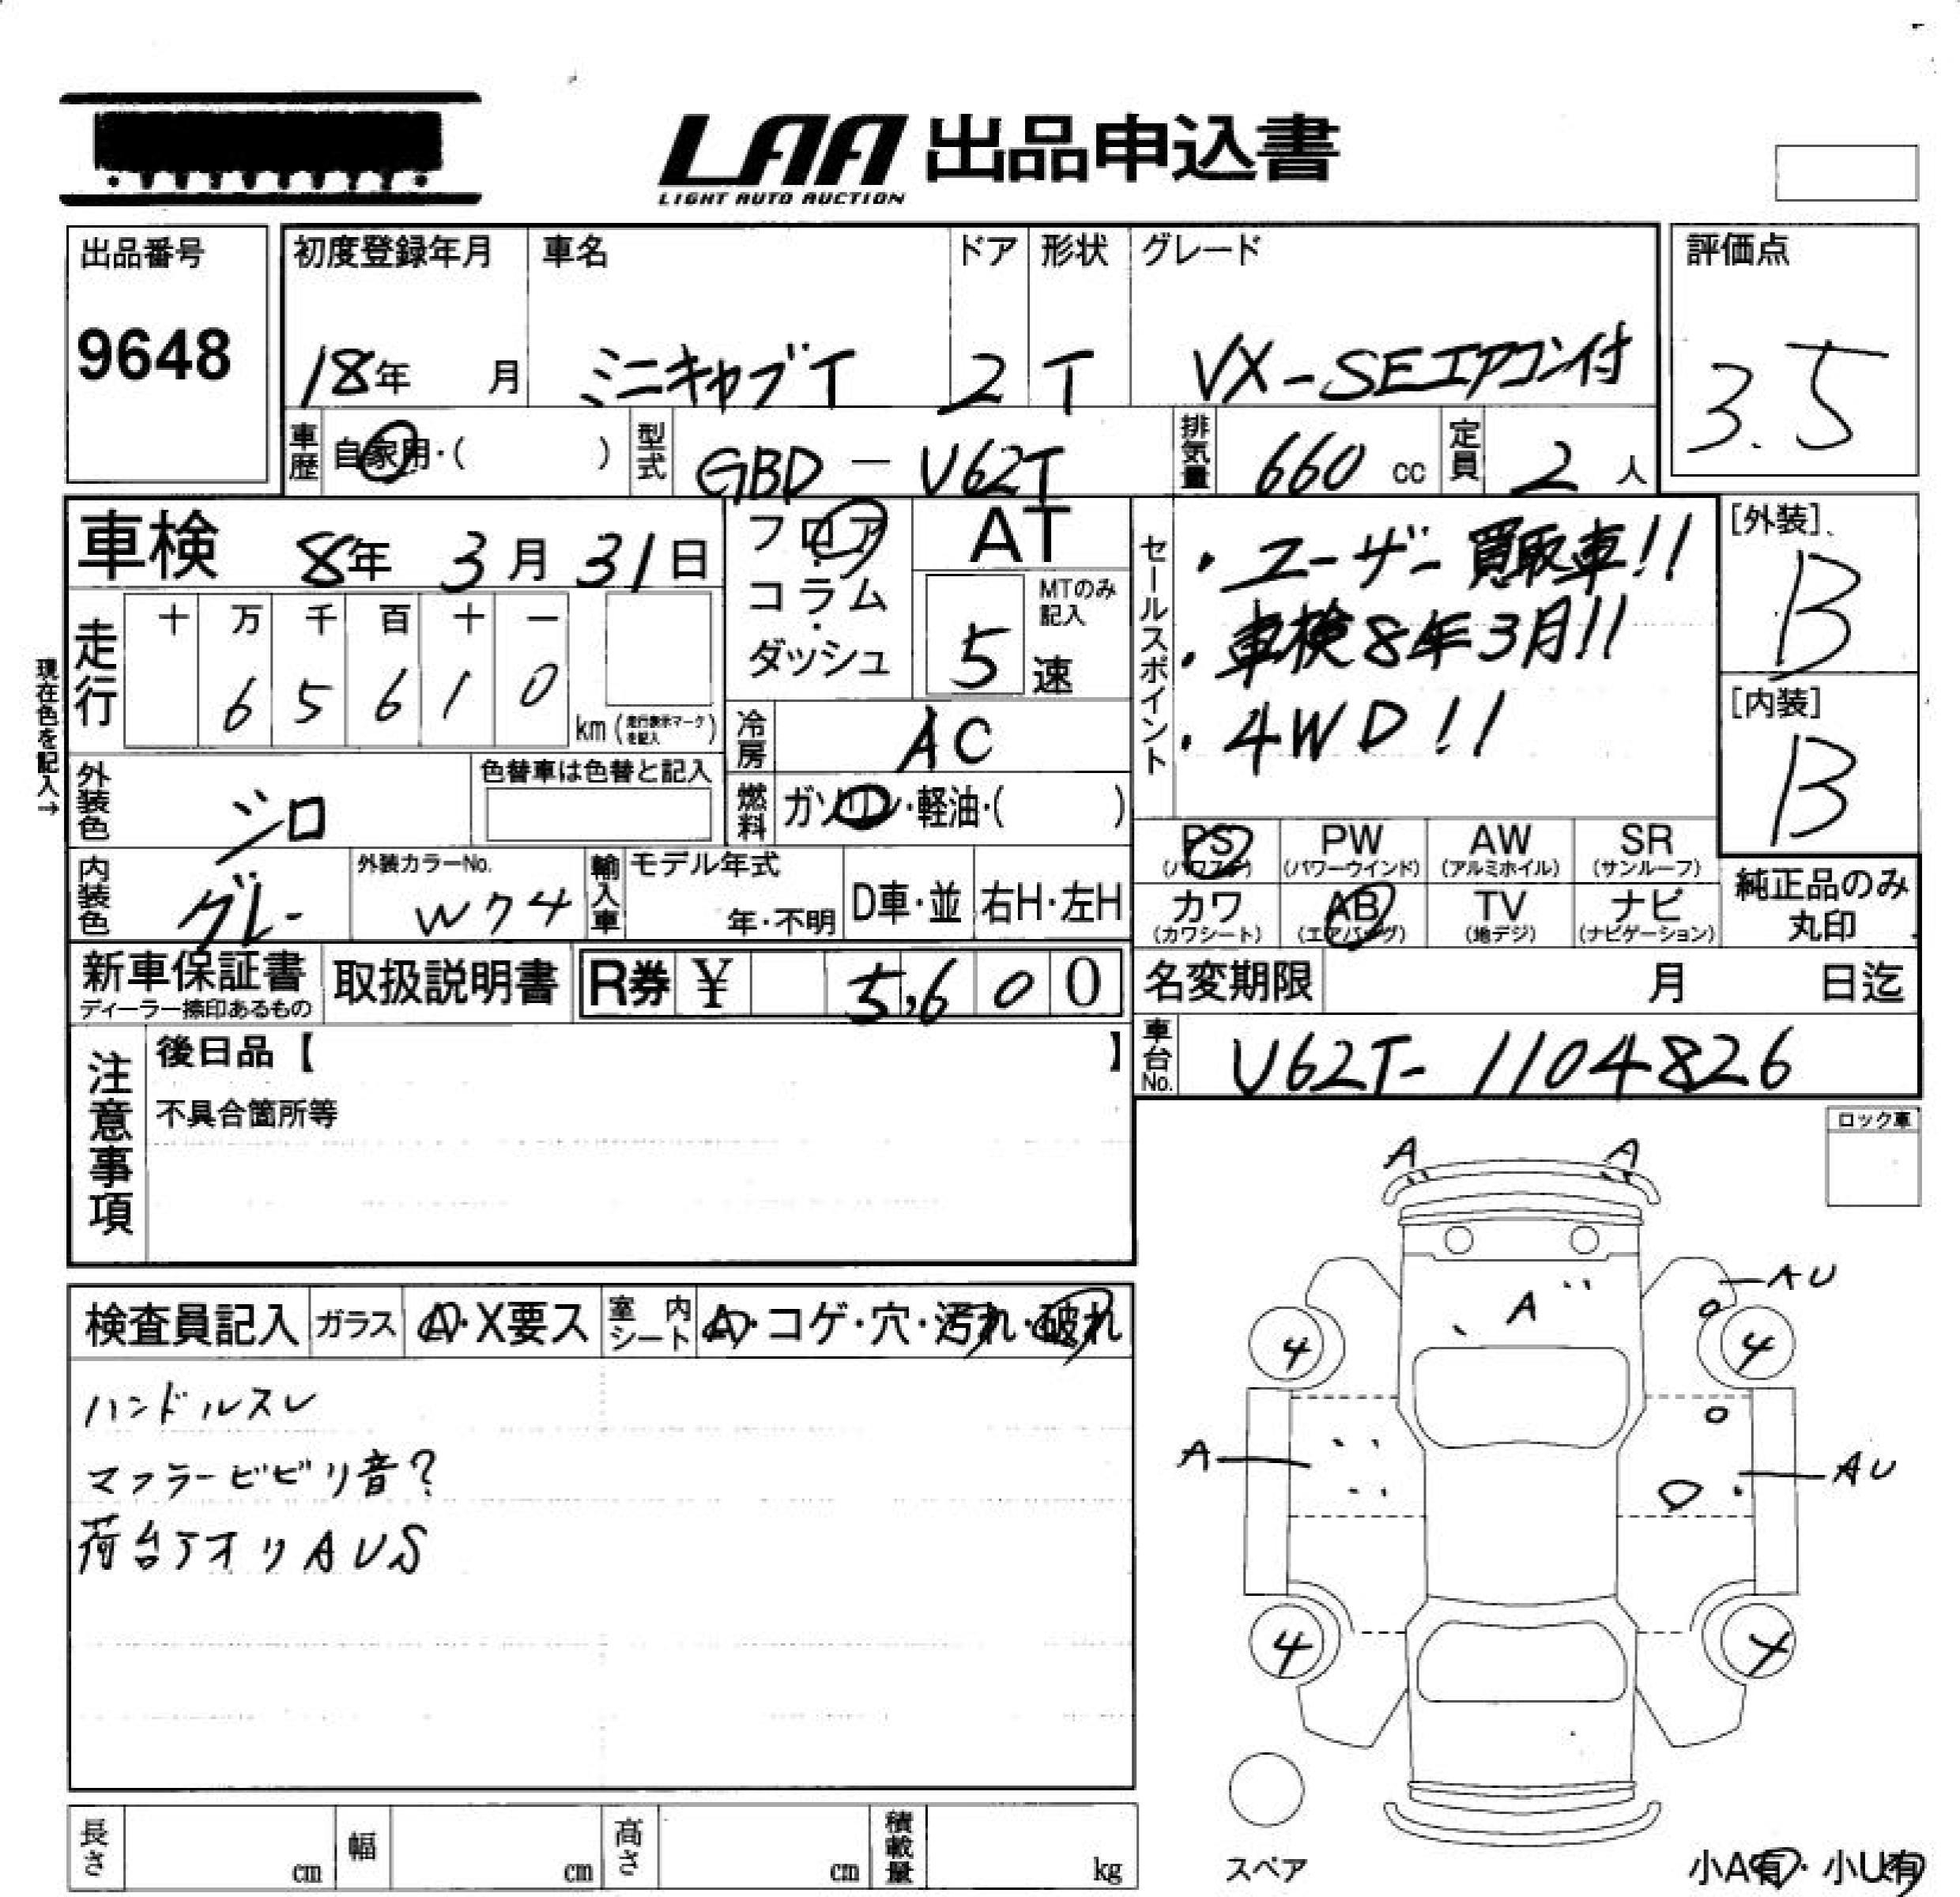 LAA 出品申込書
LIGHT AUTO AUCTION
出品番号
9648
初度登録年月
18年 月
車名
ミニキャブT
ドア
2
形状
T
グレード
VX-SEエアコン付
評価点
3.5
車歴 自家用・( )
型式 GBD-U62T
排気量 660 cc
定員 2 人
車検 8年 3月 31日
走行
十 万 千 百 十 一
6 5 6 1 0
km (走行表示マークを記入)
現在色を記入→
外装色 シロ
色替車は色替と記入
内装色 グレー
外装カラーNo.
W74
フロア・
コラム・
ダッシュ
AT
MTのみ記入
5 速
冷房 AC
燃料 ガソリン・軽油・( )
輸入車 モデル年式
年・不明
D車・並
右H・左H
セールスポイント
・ユーザー買取車!!
・車検8年3月!!
・4WD!!
[外装]
B
[内装]
B
PS
(パワステ)
PW
(パワーウインド)
AW
(アルミホイル)
SR
(サンルーフ)
カワ
(カワシート)
AB
(エアバッグ)
TV
(地デジ)
ナビ
(ナビゲーション)
純正品のみ
丸印
新車保証書
ディーラー捺印あるもの
取扱説明書
R券 ¥ 5,600
名変期限 月 日迄
車台No. U62T-1104826
注意事項
後日品【 】
不具合箇所等
ロック車
検査員記入
ガラス A・X要ス
室内シート A・コゲ・穴・汚れ・破れ
ハンドルスレ
マフラービビリ音?
荷台アオリAUS
A
A
AU
A
4
4
A
AU
4
スペア
小A有・小U有
長さ cm
幅 cm
高さ cm
積載量 kg